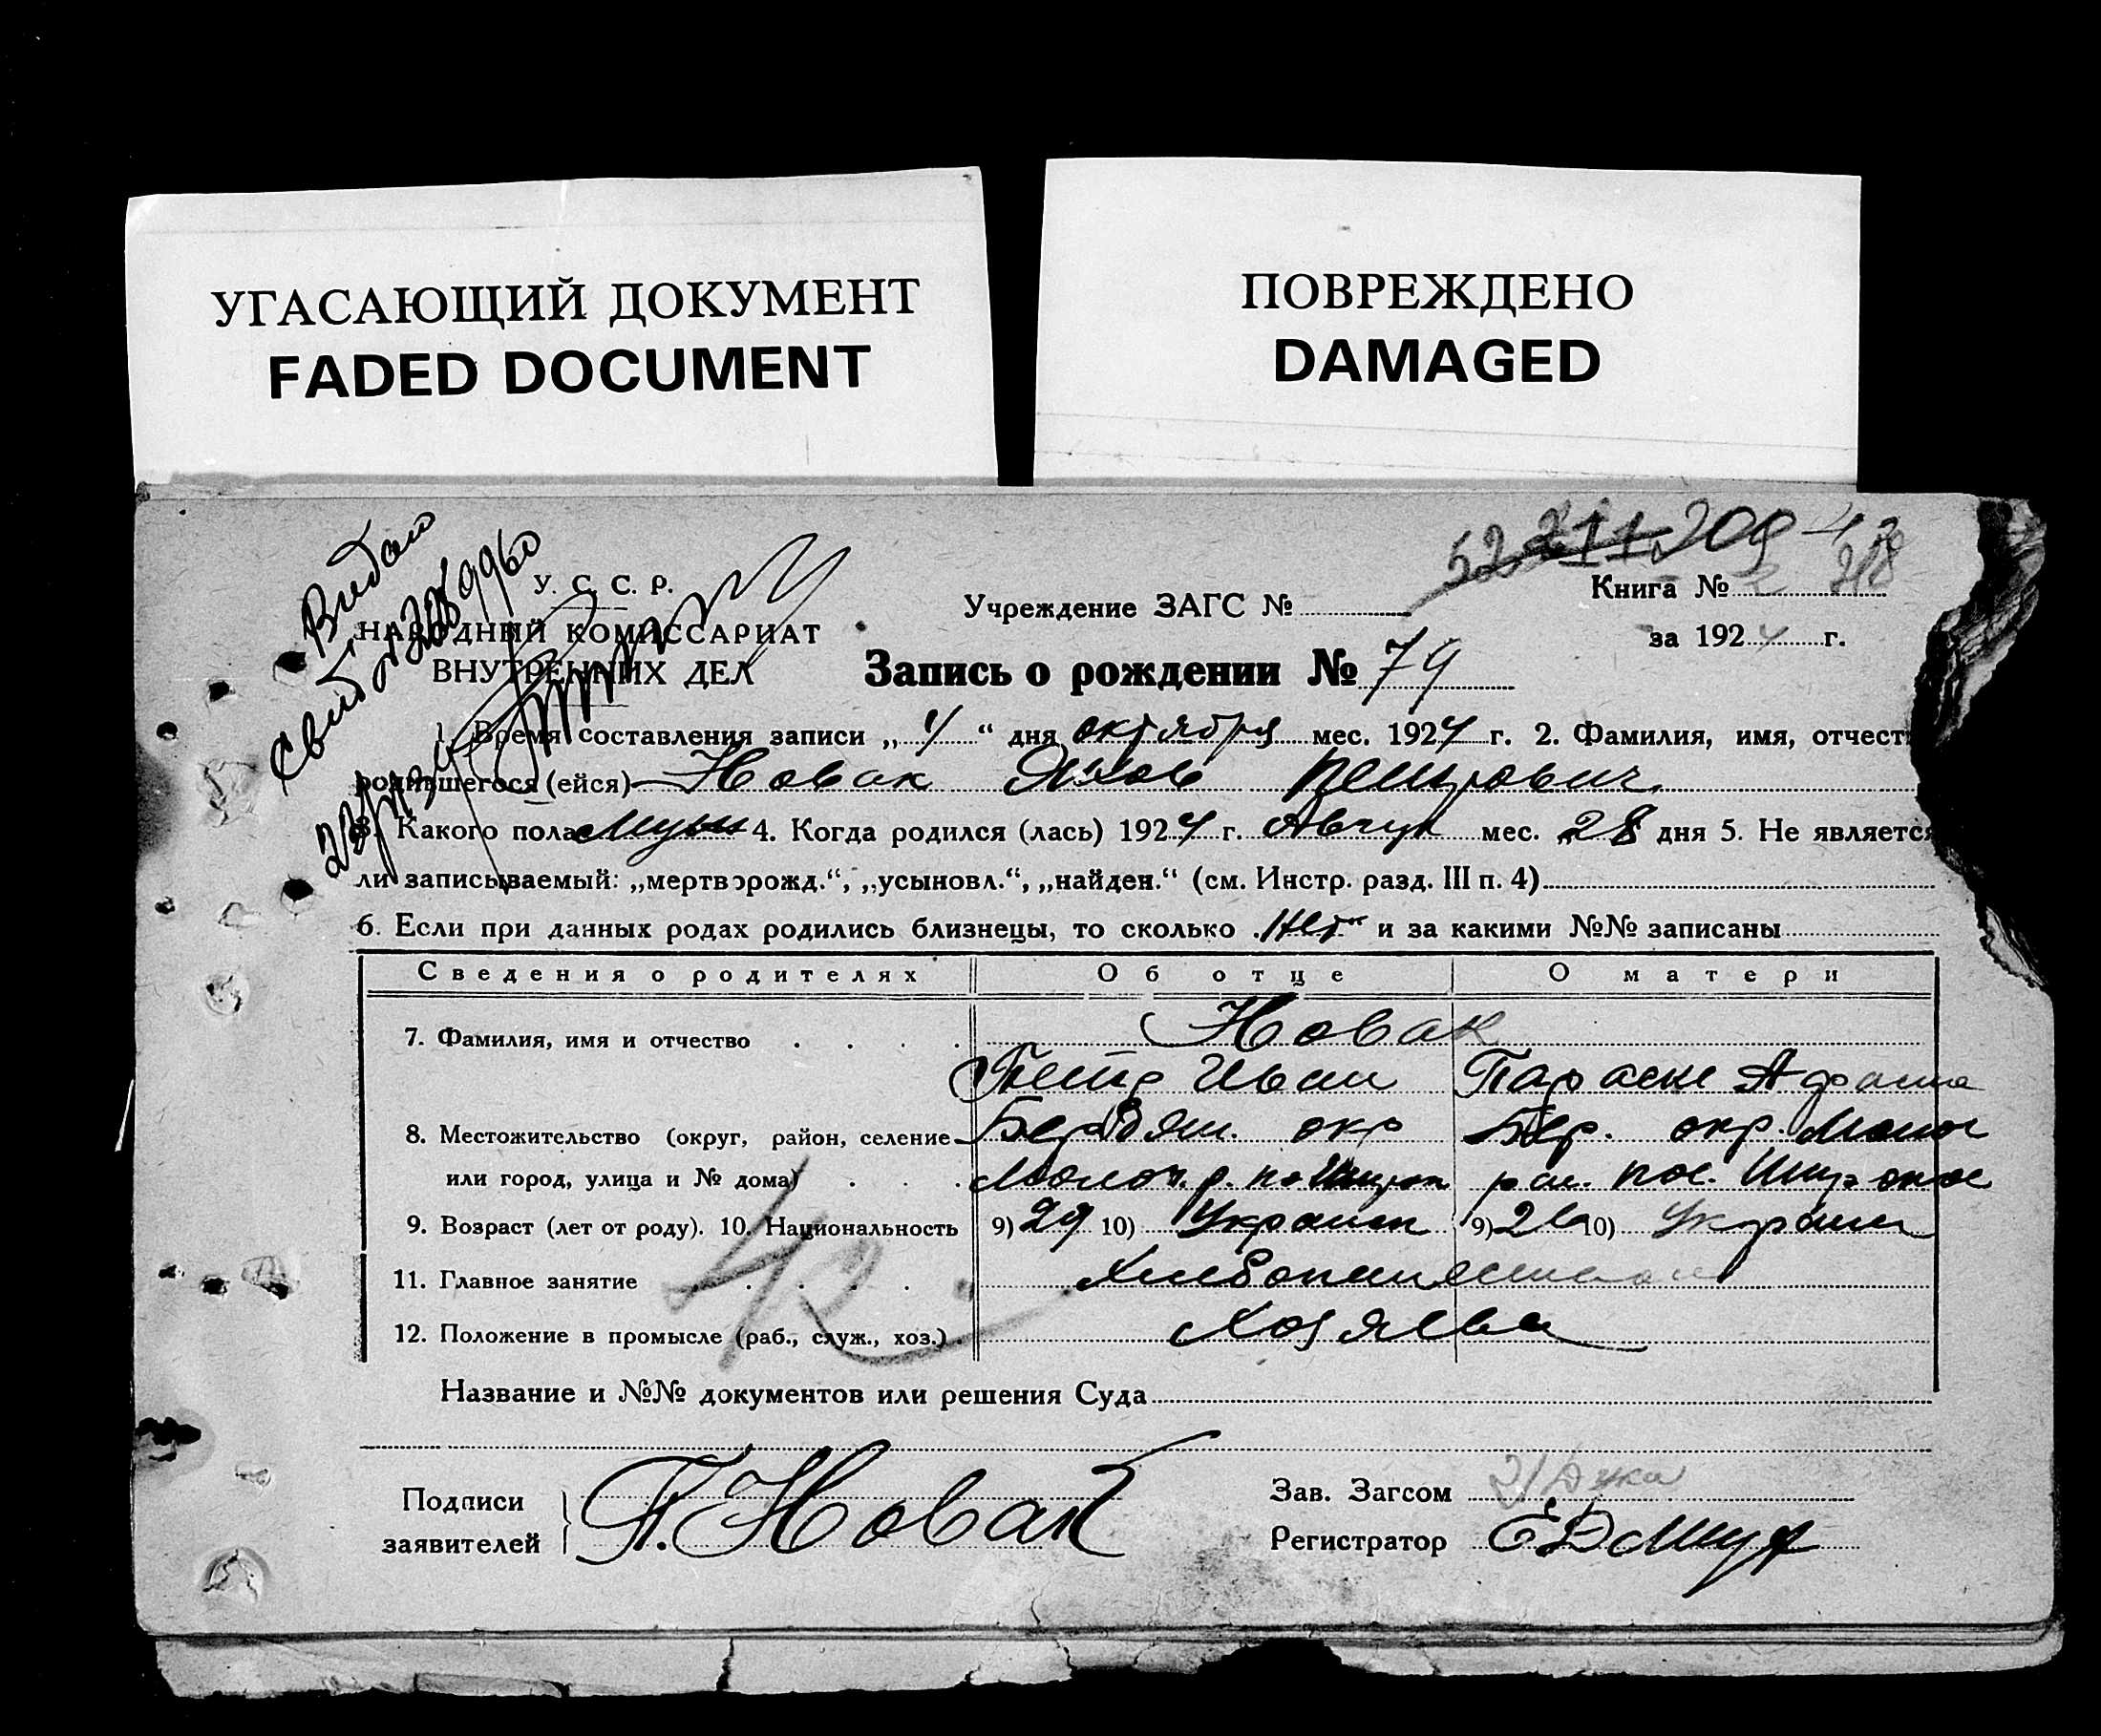 УГАСАЮЩИЙ ДОКУМЕНТ
FADED DOCUMENT
ПОВРЕЖДЕНО
DAMAGED
52 211 209
Видано
У. С. С. Р.
НАРОДНЫЙ КОМИССАРИАТ
ВНУТРЕННИХ ДЕЛ
Учреждение ЗАГС №
Книга №
за 1924 г.
Запись о рождении № 79
1. Время составления записи „4“ дня октября мес. 1924 г. 2. Фамилия, имя, отчест
родившегося (ейся) Новак Яков Петрович
3. Какого пола Муж 4. Когда родился (лась) 1924 г. Август мес. „28 дня 5. Не является
ли записываемый: „мертворожд.“, „усыновл.“, „найден.“ (см. Инстр. разд. III п. 4)
6. Если при данных родах родились близнецы, то сколько нет и за какими №№ записаны
Сведения о родителях Об отце О матери
7. Фамилия, имя и отчество Новак
Петр Иван Параске
8. Местожительство (округ, район, селение Бердян. окр Бер. окр.
или город, улица и № дома) Молоч. р. пос.
9. Возраст (лет от роду). 10. Национальность 9) 29 10) Украин 9) 26 10) Украин
11. Главное занятие
12. Положение в промысле (раб., служ., хоз.) Хозяева
42
Название и №№ документов или решения Суда
Подписи
заявителей
П. Новак
Зав. Загсом
Регистратор